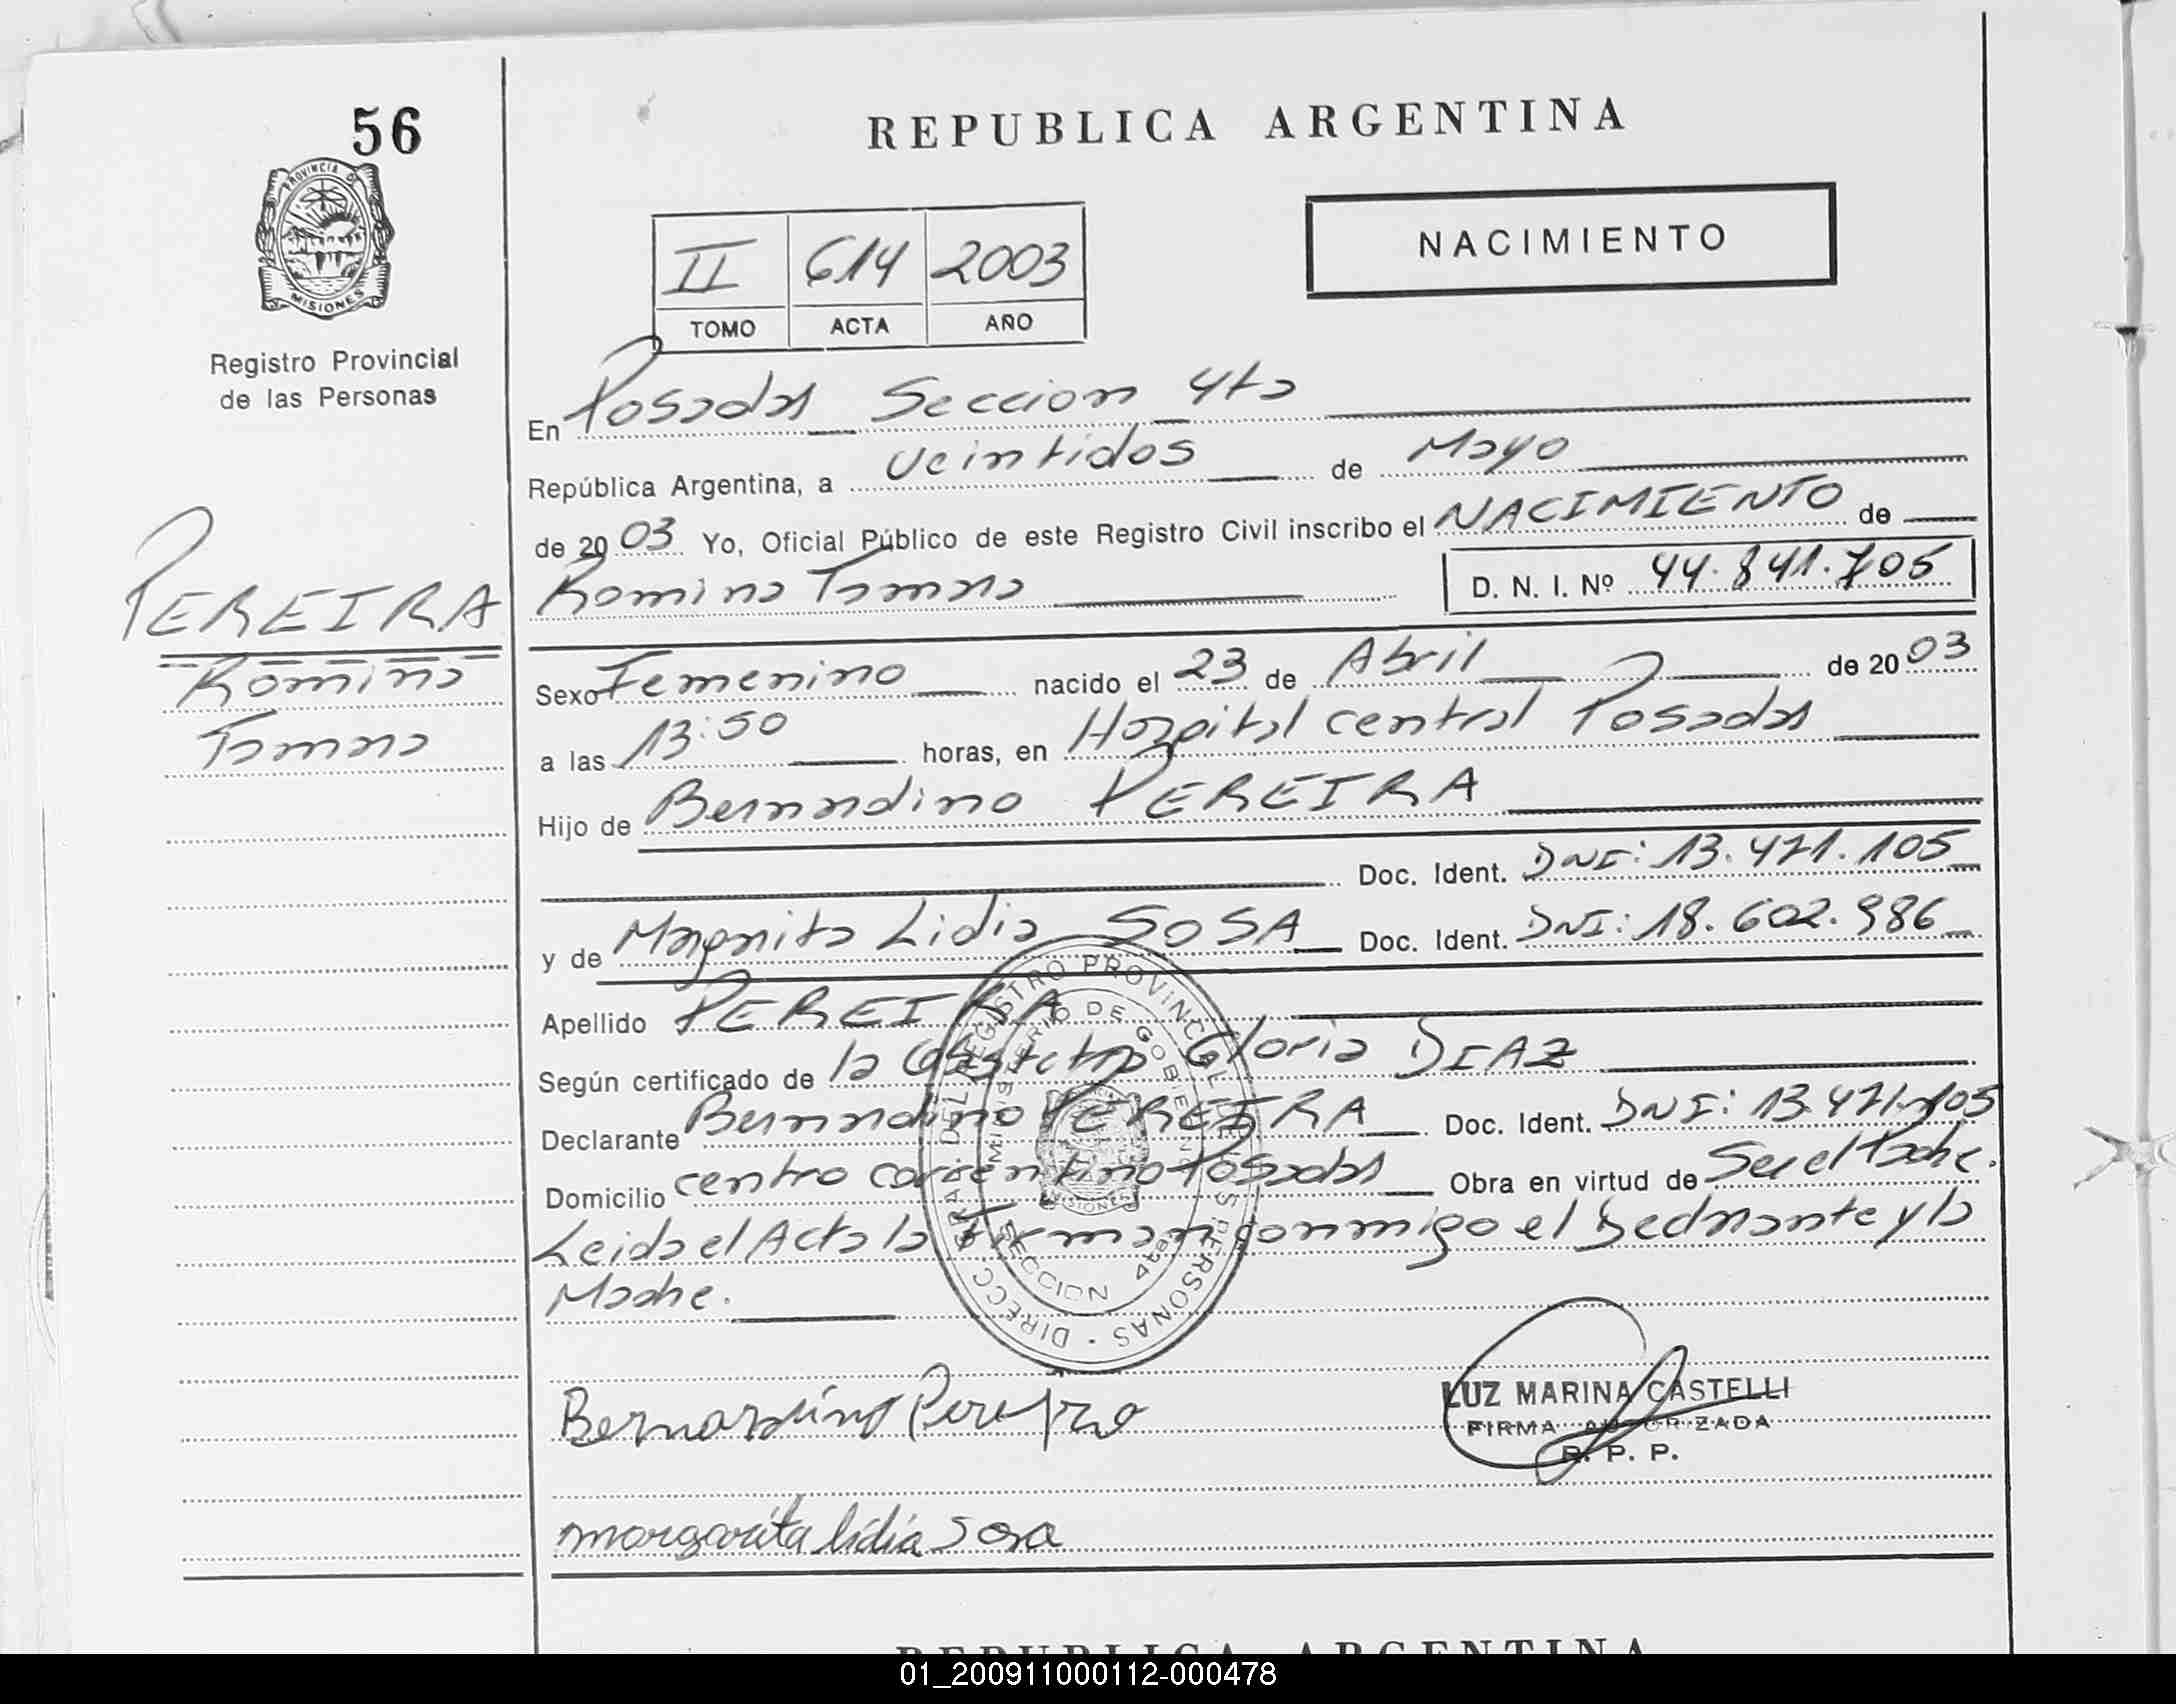 56
REPUBLICA ARGENTINA
PROVINCIA DE
MISIONES
Registro Provincial
de las Personas
NACIMIENTO
II 614 2003
TOMO ACTA AÑO
En Posadas Seccion 4ta
República Argentina, a veintidos de Mayo
de 2003 Yo, Oficial Público de este Registro Civil inscribo el NACIMIENTO de
Romina Tamara D. N. I. Nº 44.841.705
PEREIRA
Romina
Tamara
Sexo Femenino nacido el 23 de Abril de 2003
a las 13:50 horas, en Hospital central Posadas
Hijo de Bernardino PEREIRA
Doc. Ident. DNI: 13.471.105
y de Margarita Lidia SOSA Doc. Ident. DNI: 18.602.986
Apellido PEREIRA
Según certificado de la Obstetra Gloria DIAZ
Declarante Bernardino PEREIRA Doc. Ident. DNI: 13.471.105
Domicilio centro correntino Posadas Obra en virtud de Ser el Padre.
Leida el Acta la Firman conmigo el Declarante y la
Madre.
DIRECC. GRAL. DEL REGISTRO PROVINCIAL DE LAS PERSONAS
MINISTERIO DE GOBIERNO
MISIONES
SECCION 4ta
Bernardino Pereyra
LUZ MARINA CASTELLI
FIRMA AUTORIZADA
R. P. P.
margarita lidia Sosa
REPUBLICA ARGENTINA
01_200911000112-000478